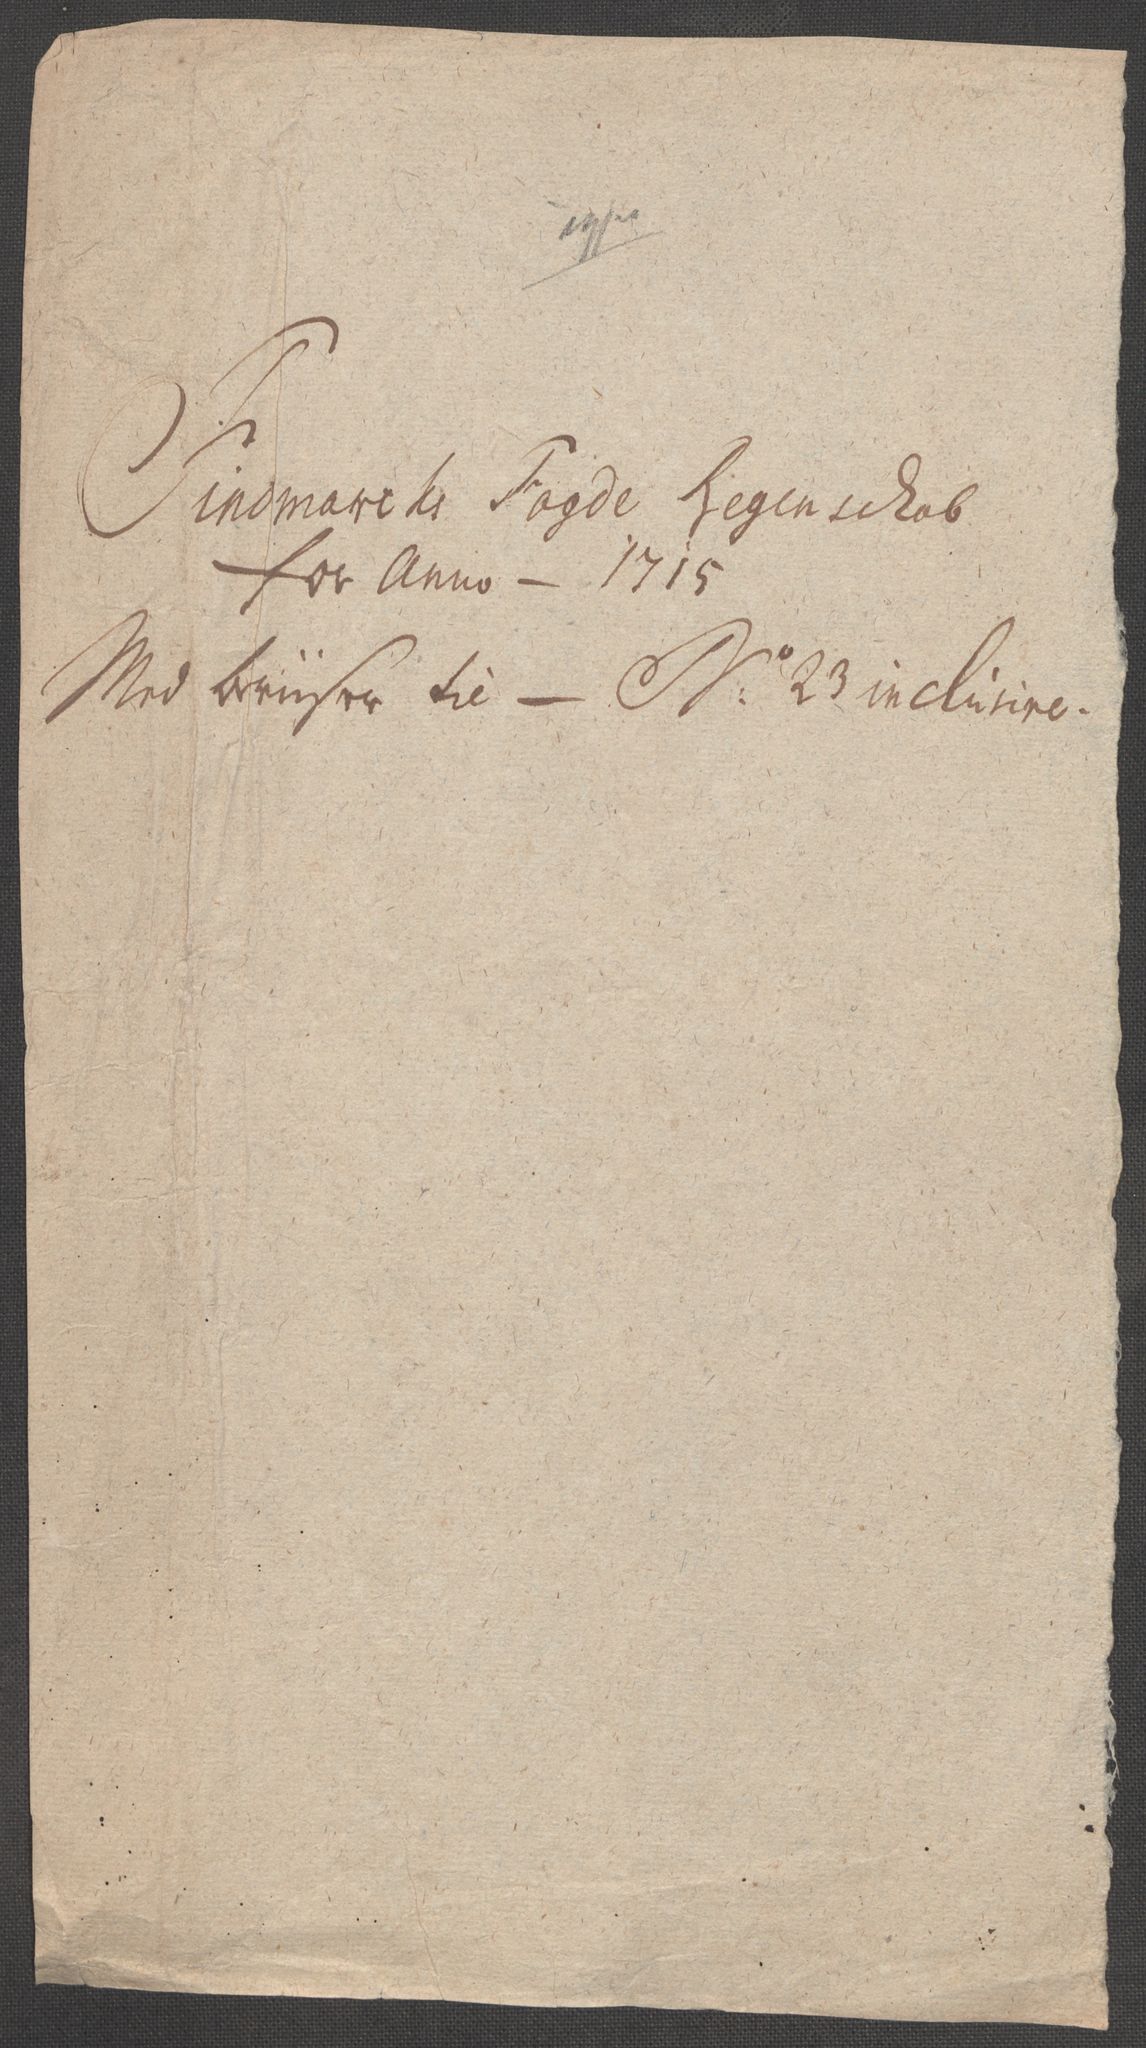 Findmarchs Fogde Regenschab
for Anno – 1715
Med beviiser til – No: 23 inclusive.